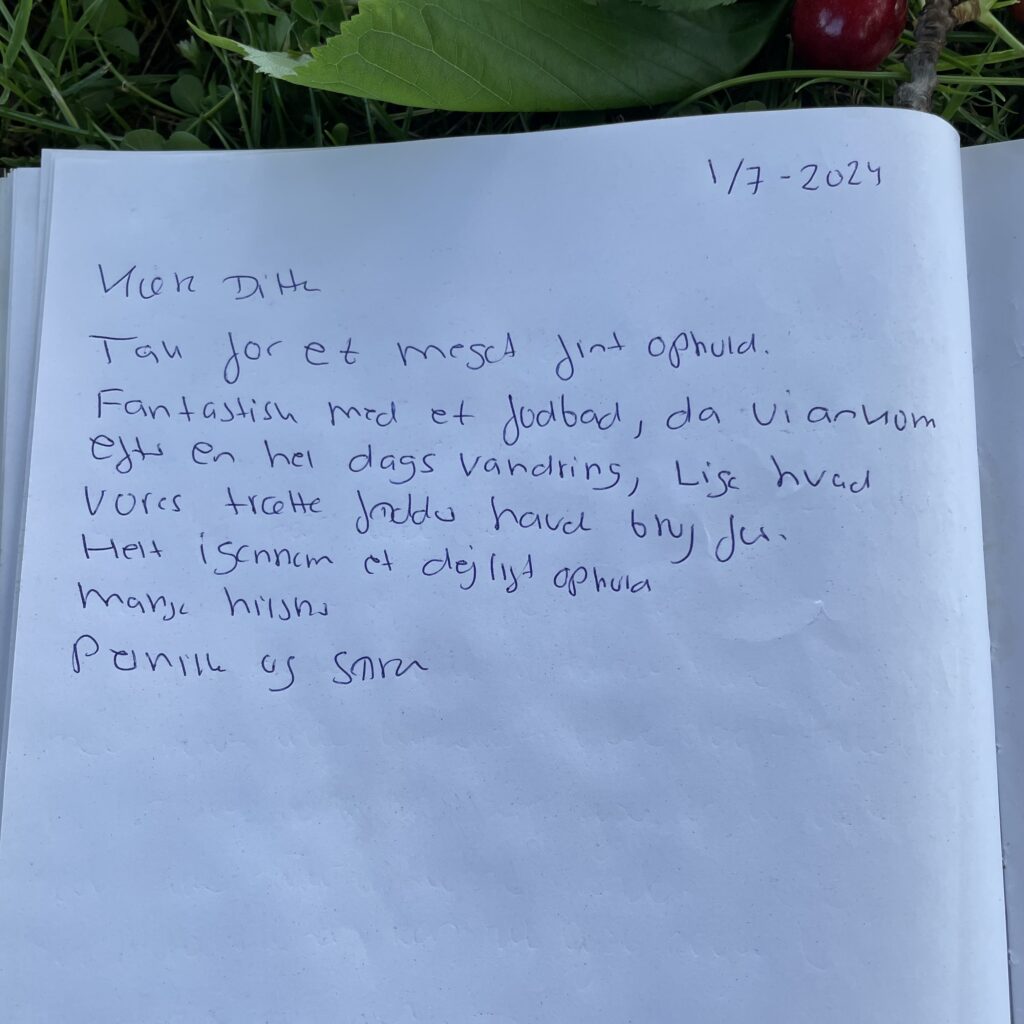 1/7-2024
Kære Ditte
Tak for et meget fint ophold.
Fantastisk med et fodbad, da vi ankom
efter en hel dags vandring, Lige hvad
vores trætte fødder havde brug for.
Helt igennem et dejligt ophold
Mange hilsner
Pernille og Søren